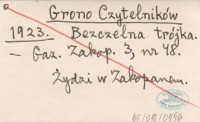 Grono Czytelników
1923. Bezczelna trójka.
— Gaz. Zakop. 3, nr 48.
Żydzi w Zakopanem.